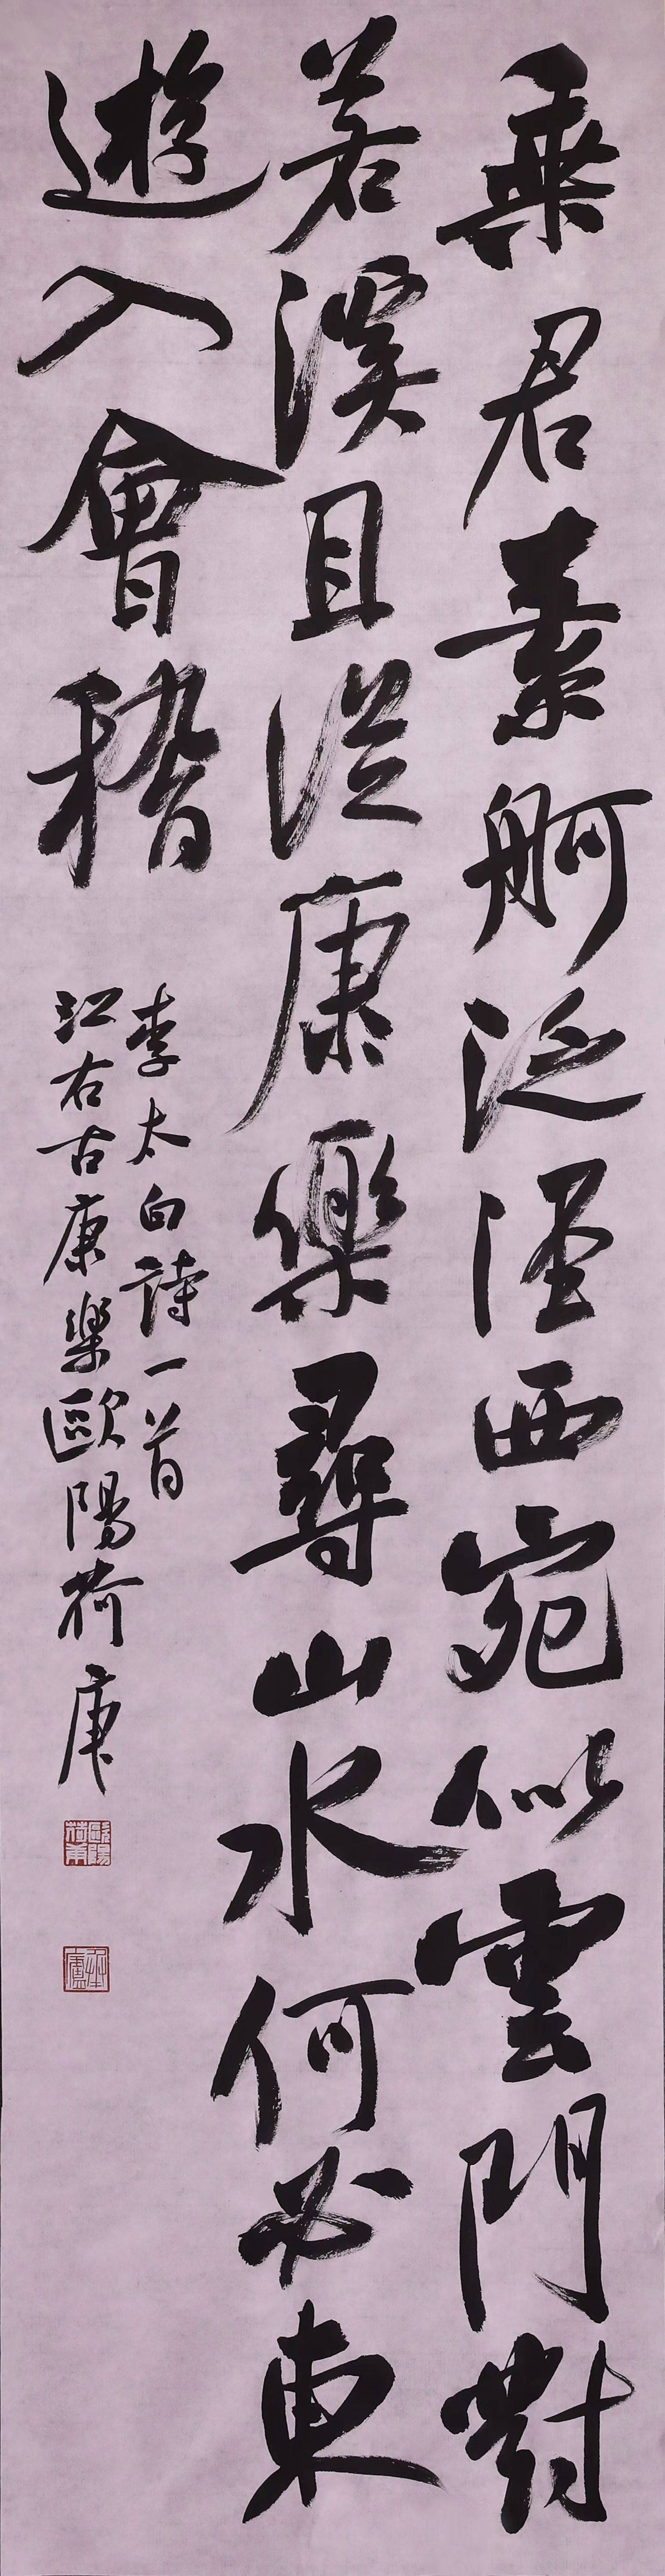 乘君素舸泛涇西宛似雲門對
若溪且從康樂尋山水何必東
遊入會稽
李太白詩一首
江右古康樂歐陽荷庚
歐陽荷庚